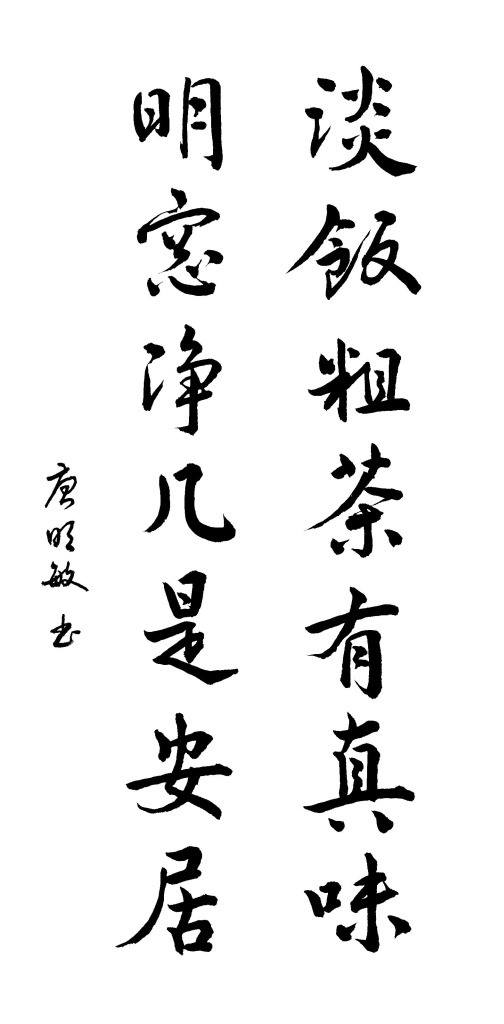 淡飯粗茶有真味
明窓净几是安居
唐明敏书